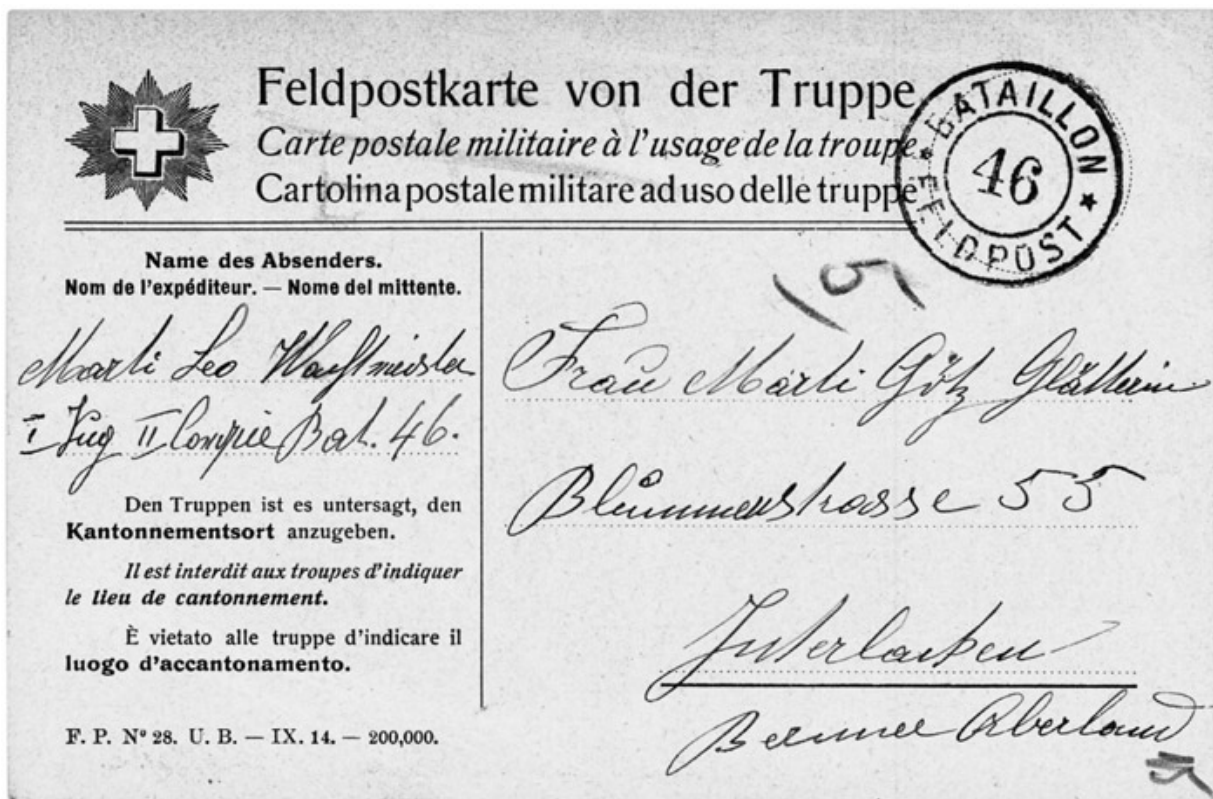 Feldpostkarte von der Truppe
Carte postale militaire à l'usage de la troupe
Cartolina postale militare ad uso delle truppe
BATAILLON
46
FELDPOST
Name des Absenders.
Nom de l'expéditeur. — Nome del mittente.
Marti Leo Wachtmeister
I Zug II Compie Bat. 46.
Den Truppen ist es untersagt, den
Kantonnementsort anzugeben.
Il est interdit aux troupes d'indiquer
le lieu de cantonnement.
È vietato alle truppe d'indicare il
luogo d'accantonamento.
F. P. Nº 28. U. B. — IX. 14. — 200,000.
Frau Marti Götz Glätterin
Blummenstrasse 55
Interlacken
Berner Oberland